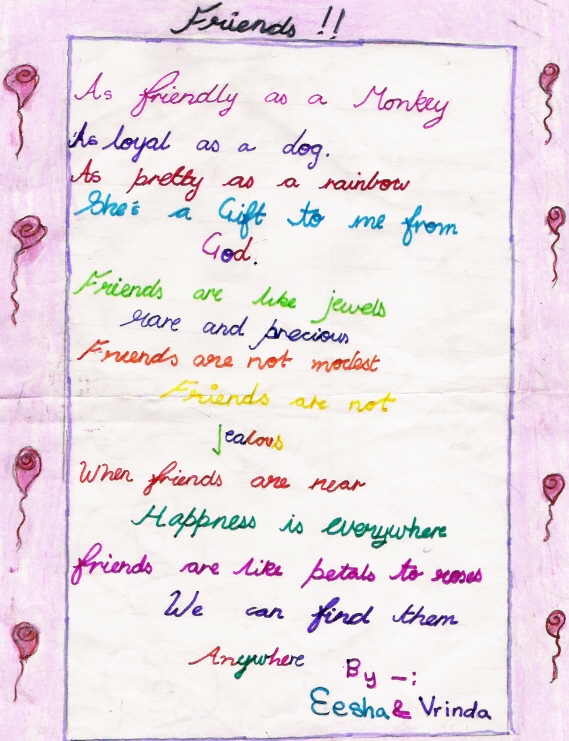 Friends !!
As friendly as a Monkey
As loyal as a dog.
As pretty as a rainbow
She's a Gift to me from
God.
Friends are like jewels
rare and precious
Friends are not modest
Friends are not
jealous
When friends are near
Happness is everywhere
friends are like petals to roses
We can find them
Anywhere
By -:
Eesha & Vrinda